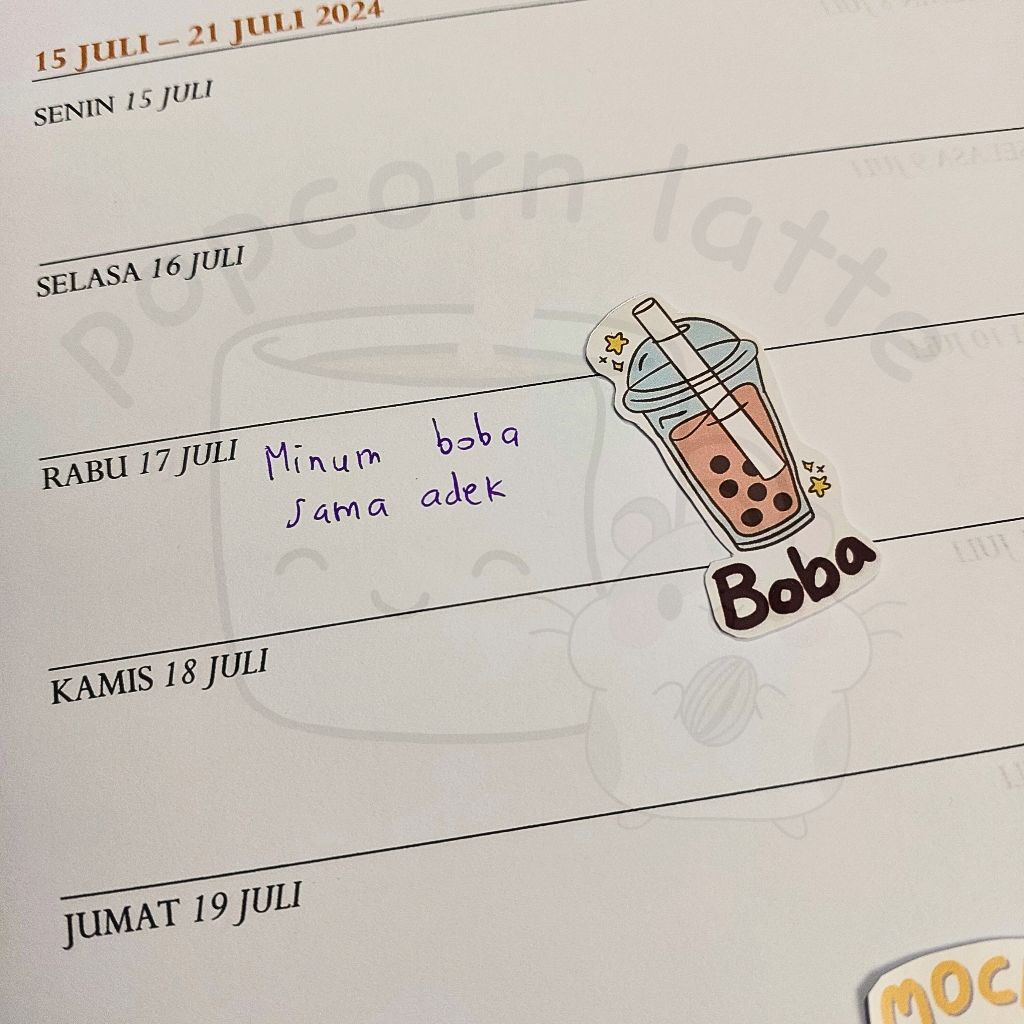 15 JULI – 21 JULI 2024
SENIN 15 JULI
popcorn latte
SELASA 16 JULI
RABU 17 JULI Minum boba
sama adek
Boba
KAMIS 18 JULI
JUMAT 19 JULI